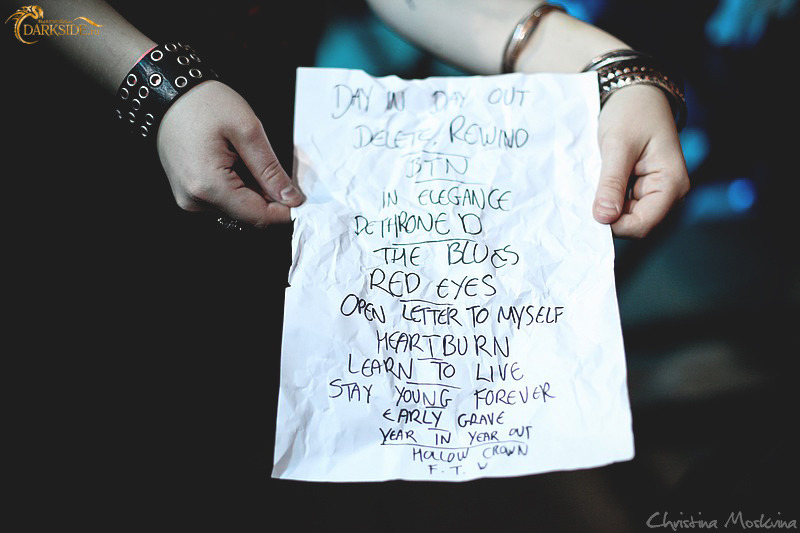 DARKSIDE.RU
DAY IN DAY OUT
DELETE, REWIND
BTN
IN ELEGANCE
DETHRONED
THE BLUES
RED EYES
OPEN LETTER TO MYSELF
HEARTBURN
LEARN TO LIVE
STAY YOUNG FOREVER
EARLY GRAVE
YEAR IN YEAR OUT
HOLLOW CROWN
F. T. W
Christina Moskvina